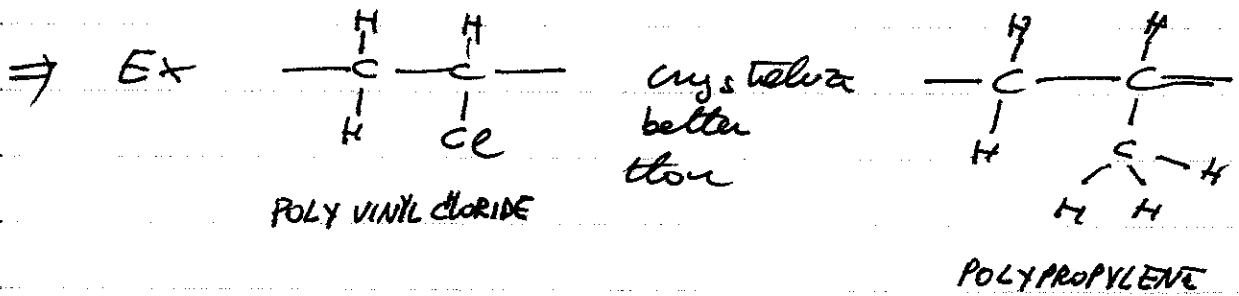 ⇒ Ex
H H
— C — C —
H Cl
POLY VINYL CLORIDE
crystalize
better
than
H H
— C — C =
H C H
H H
POLYPROPYLENE